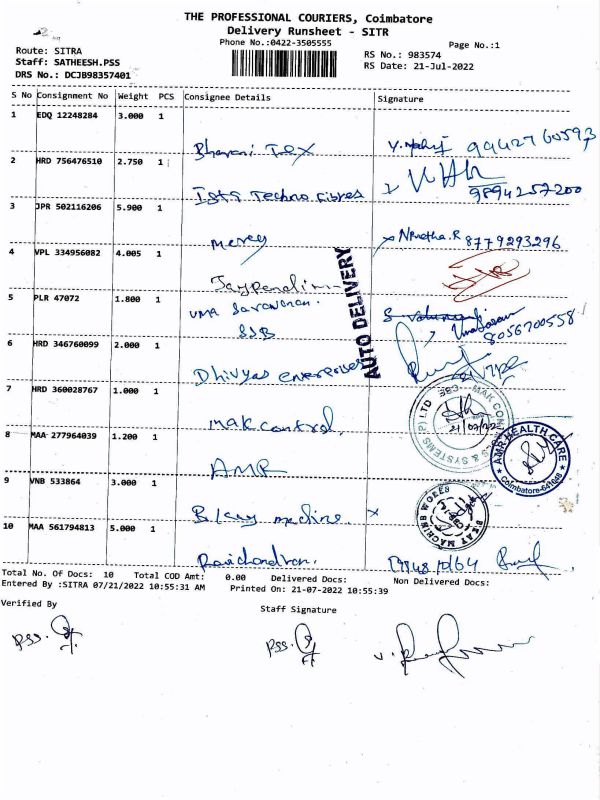 THE PROFESSIONAL COURIERS, Coimbatore
Delivery Runsheet - SITR
Phone No.:0422-3505555
Page No.:1
Route: SITRA
Staff: SATHEESH.PSS
DRS No.: DCJB98357401
RS No.: 983574
RS Date: 21-Jul-2022
S No Consignment No Weight PCS Consignee Details Signature
1 EDQ 12248284 3.000 1
Bharani Tex 9942760593
2 HRD 756476510 2.750 1
Techno fibres 9894257200
3 JPR 502116206 5.900 1
Mercy 8779293296
4 VPL 334956082 4.005 1
AUTO DELIVERY
5 PLR 47072 1.800 1
UMA Saravanan.
SSB 8056700558
6 HRD 346760099 2.000 1
Dhivyas enterprises
7 HRD 360028767 1.000 1
mak control.
383, MAK CONTROLS & SYSTEMS (P) LTD
21/07/22
8 MAA 277964039 1.200 1
AMR
AMR HEALTH CARE
Coimbatore-641048
9 VNB 533864 3.000 1
machine
10 MAA 561794813 5.000 1
Ravichandran.
Total No. Of Docs: 10 Total COD Amt: 0.00 Delivered Docs: Non Delivered Docs:
Entered By :SITRA 07/21/2022 10:55:31 AM Printed On: 21-07-2022 10:55:39
Verified By Staff Signature
PSS. PSS.